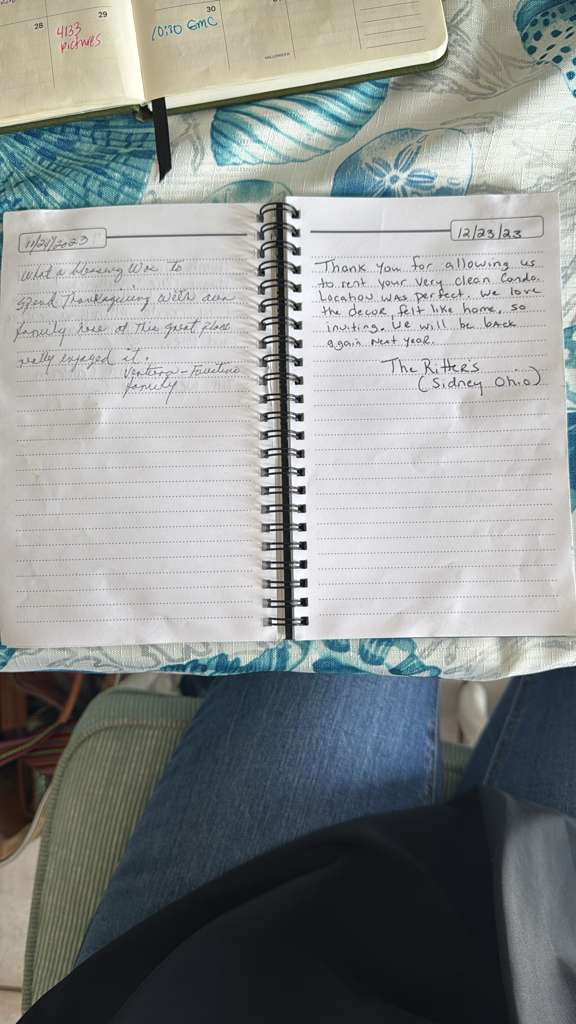 28
29
4133
pictures
30
10:30 GMC
11/24/2023
What a blessing was to
spend Thanksgiving with our
family here at this great place
really enjoyed it.
family
12/23/23
Thank you for allowing us
to rent your very clean Condo.
Location was perfect. We love
the decor, felt like home, so
inviting. We will be back
again next year.
The Ritters
(Sidney Ohio)